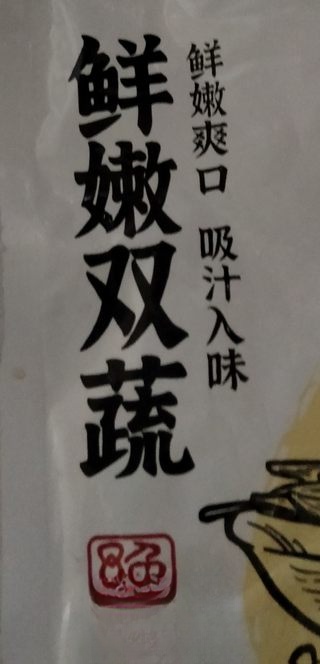 鲜嫩双蔬
鲜嫩爽口 吸汁入味